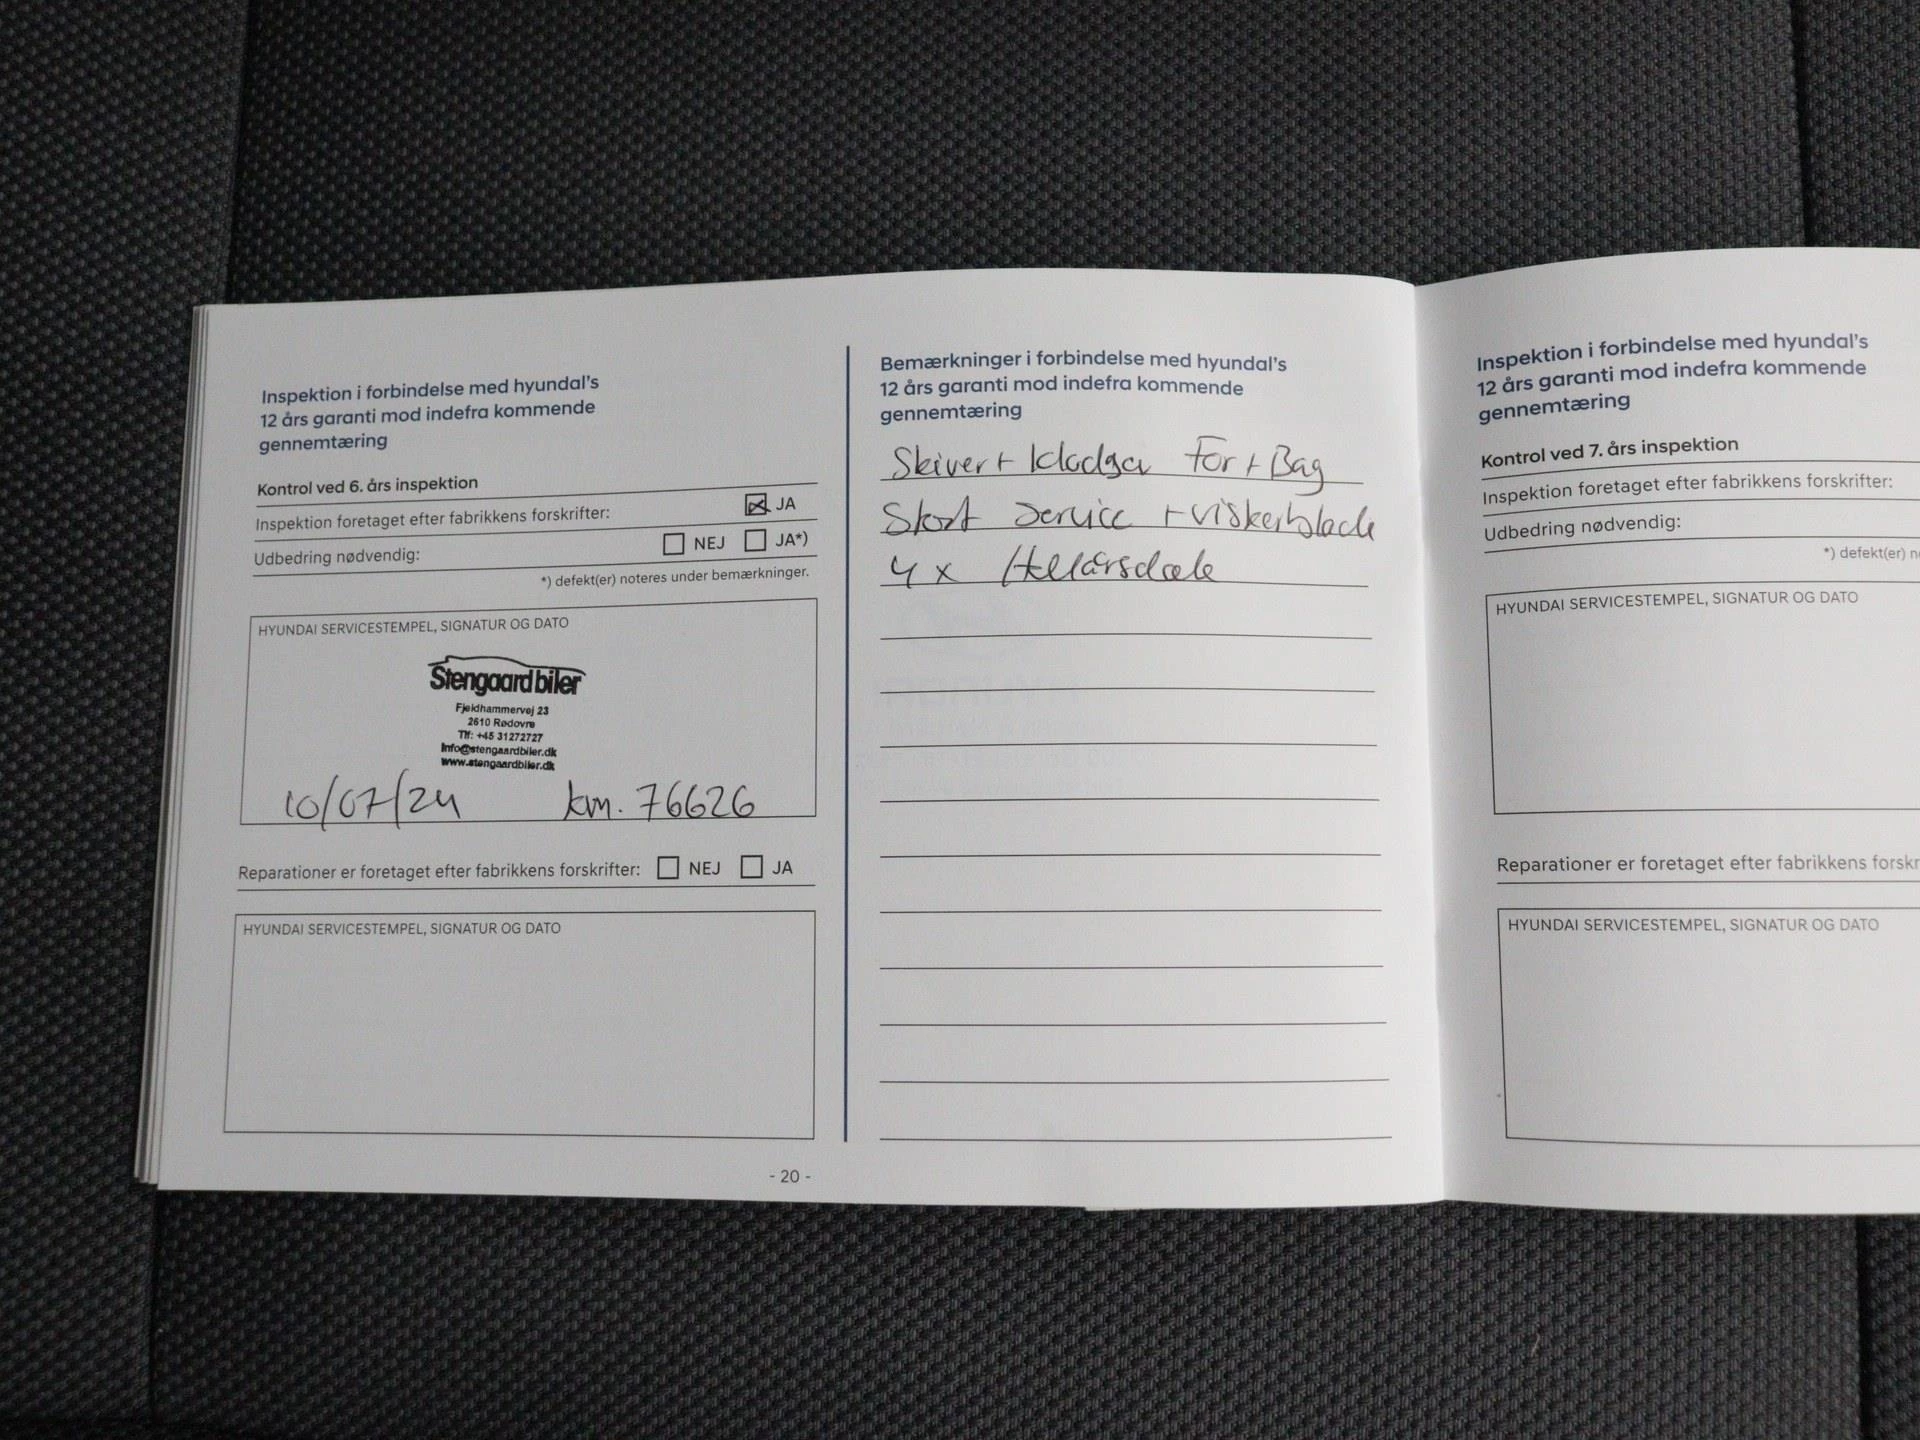 Inspektion i forbindelse med hyundai's
12 års garanti mod indefra kommende
gennemtæring
Kontrol ved 6. års inspektion
Inspektion foretaget efter fabrikkens forskrifter: JA
Udbedring nødvendig: NEJ JA*)
*) defekt(er) noteres under bemærkninger.
HYUNDAI SERVICESTEMPEL, SIGNATUR OG DATO
Stengaard biler
Fjeldhammervej 23
2610 Rødovre
Tlf: +45 31272727
Info@stengaardbiler.dk
www.stengaardbiler.dk
10/07/24 km. 76626
Reparationer er foretaget efter fabrikkens forskrifter: NEJ JA
HYUNDAI SERVICESTEMPEL, SIGNATUR OG DATO
- 20 -
Bemærkninger i forbindelse med hyundai's
12 års garanti mod indefra kommende
gennemtæring
Skiver + klodser For + Bag
Stort Service + viskerblade
4 x Helårsdæk
Inspektion i forbindelse med hyundai's
12 års garanti mod indefra kommende
gennemtæring
Kontrol ved 7. års inspektion
Inspektion foretaget efter fabrikkens forskrifter:
Udbedring nødvendig:
*) defekt(er) n
HYUNDAI SERVICESTEMPEL, SIGNATUR OG DATO
Reparationer er foretaget efter fabrikkens forskr
HYUNDAI SERVICESTEMPEL, SIGNATUR OG DATO